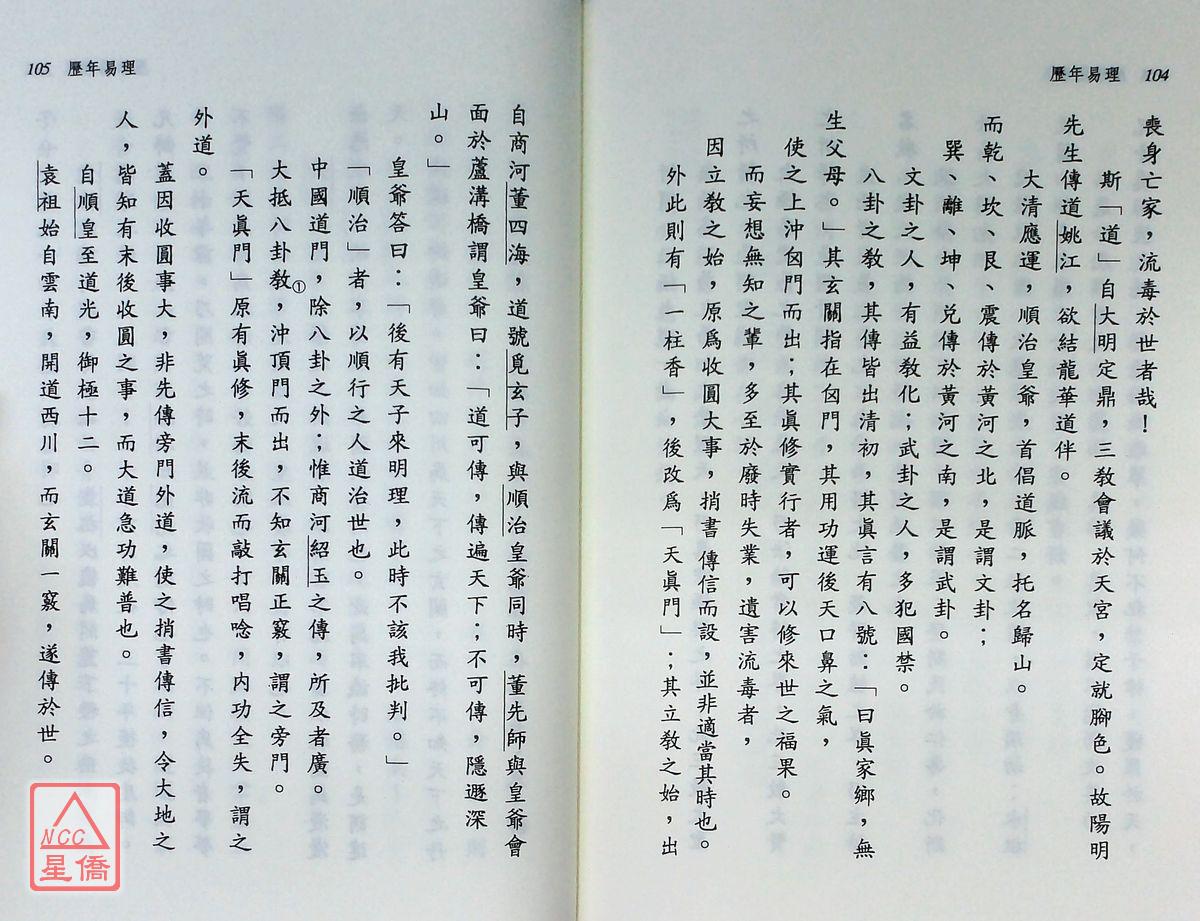 歷年易理 104
喪身亡家，流毒於世者哉！
斯「道」自大明定鼎，三教會議於天宮，定就腳色。故陽明
先生傳道姚江，欲結龍華道伴。
大清應運，順治皇爺，首倡道脈，托名歸山。
而乾、坎、艮、震傳於黃河之北，是謂文卦；
巽、離、坤、兌傳於黃河之南，是謂武卦。
文卦之人，有益教化；武卦之人，多犯國禁。
八卦之教，其傳皆出清初，其眞言有八號：「曰眞家鄉，無
生父母。」其玄關指在囟門，其用功運後天口鼻之氣，
使之上沖囟門而出；其眞修實行者，可以修來世之福果。
而妄想無知之輩，多至於廢時失業，遺害流毒者，
因立教之始，原爲收圓大事，捎書傳信而設，並非適當其時也。
外此則有「一柱香」，後改爲「天眞門」；其立教之始，出
105 歷年易理
自商河董四海，道號覓玄子，與順治皇爺同時，董先師與皇爺會
面於蘆溝橋謂皇爺曰：「道可傳，傳遍天下；不可傳，隱遯深
山。」
皇爺答曰：「後有天子來明理，此時不該我批判。」
「順治」者，以順行之人道治世也。
中國道門，除八卦之外；惟商河紹玉之傳，所及者廣。
大抵八卦教①，沖頂門而出，不知玄關正竅，謂之旁門。
「天眞門」原有眞修，末後流而敲打唱唸，內功全失，謂之
外道。
蓋因收圓事大，非先傳旁門外道，使之捎書傳信，令大地之
人，皆知有末後收圓之事，而大道急功難普也。
自順皇至道光，御極十二。
袁祖始自雲南，開道西川，而玄關一竅，遂傳於世。
NCC
星僑